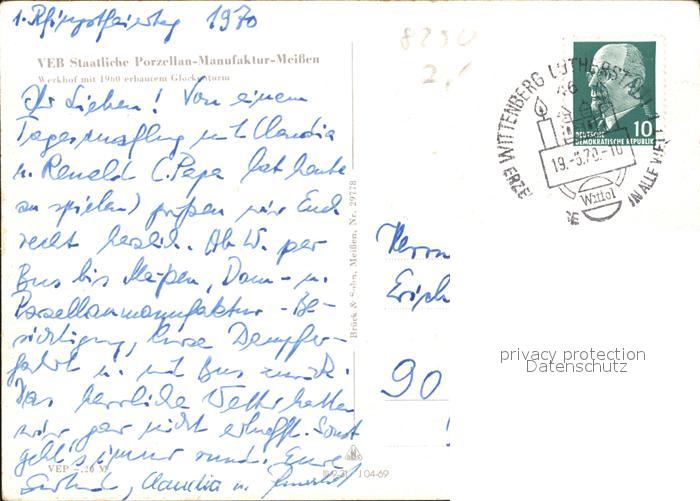 1. Pfingstfeiertag 1970
VEB Staatliche Porzellan-Manufaktur-Meißen
Werkhof mit 1960 erbautem Glockenturm
Ihr Lieben! Von einem
Tagesausflug mit Claudia
u. Renald (. Papa hat heute
zu spielen) grüßen wir Euch
recht herzlich. Ab W. per
Bus bis Meißen, Dom- u.
Porzellanmanufaktur-Be-
sichtigung, kurze Dampfer-
fahrt u. mit Bus zurück.
Das herrliche Wetter hatten
wir gar nicht erhofft. Sonst
geht's immer rund. Eure
Claudia u.
VEP -,20 M
III/9/21 J 04-69
Brück & Sohn, Meißen, Nr. 29778
8250
2,
WITTENBERG LUTHERSTADT
46
19.-5.70.-10
Wittol
KERZE
IN ALLE WELT
10
DEUTSCHE
DEMOKRATISCHE REPUBLIK
Herrn
Erich
90
privacy protection
Datenschutz